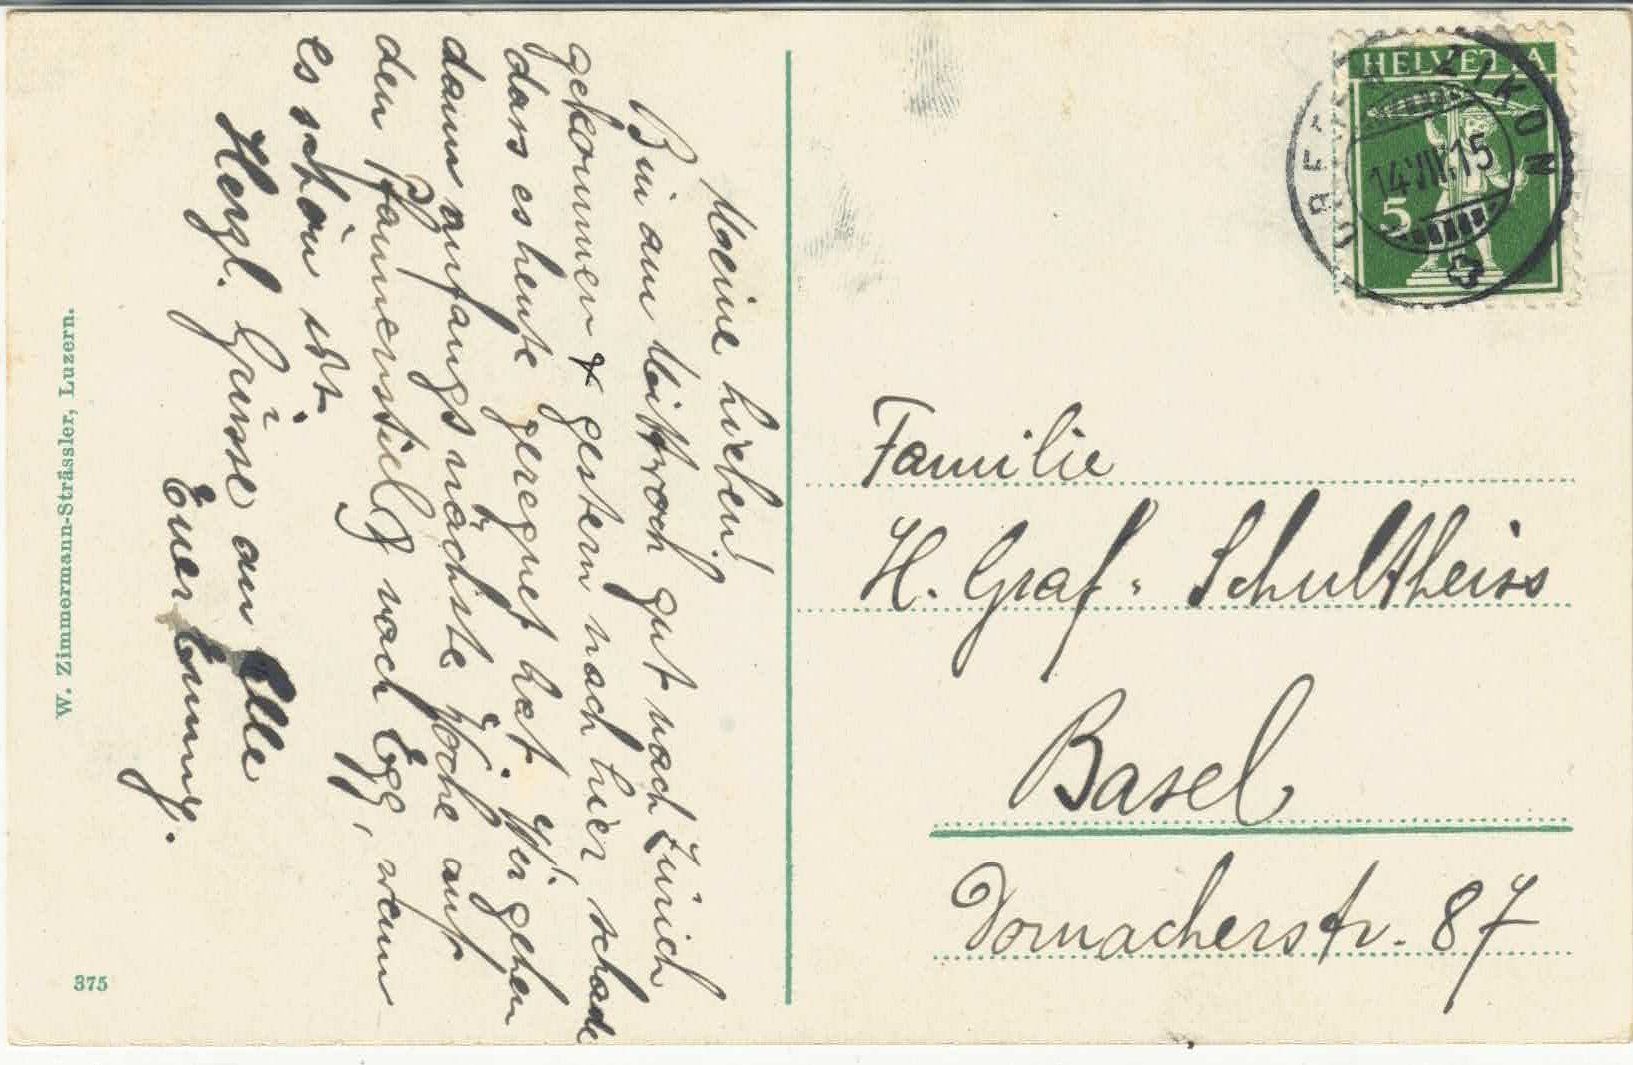 Meine Lieben!
Bin am Mittwoch gut nach Zürich
gekommen & gestern nach hier, schade
dass es heute geregnet hat. Wir gehen
dann anfangs nächste Woche auf
den Pfannenstiel & nach Egg, wenn
es schön ist.
Herzl. Grüsse an Alle
Euer Emmy.
W. Zimmermann-Strässler, Luzern.
375
HELVETIA
5
14.VIII.15
Familie
H. Graf-Schultheiss
Basel
Dornacherstr. 87